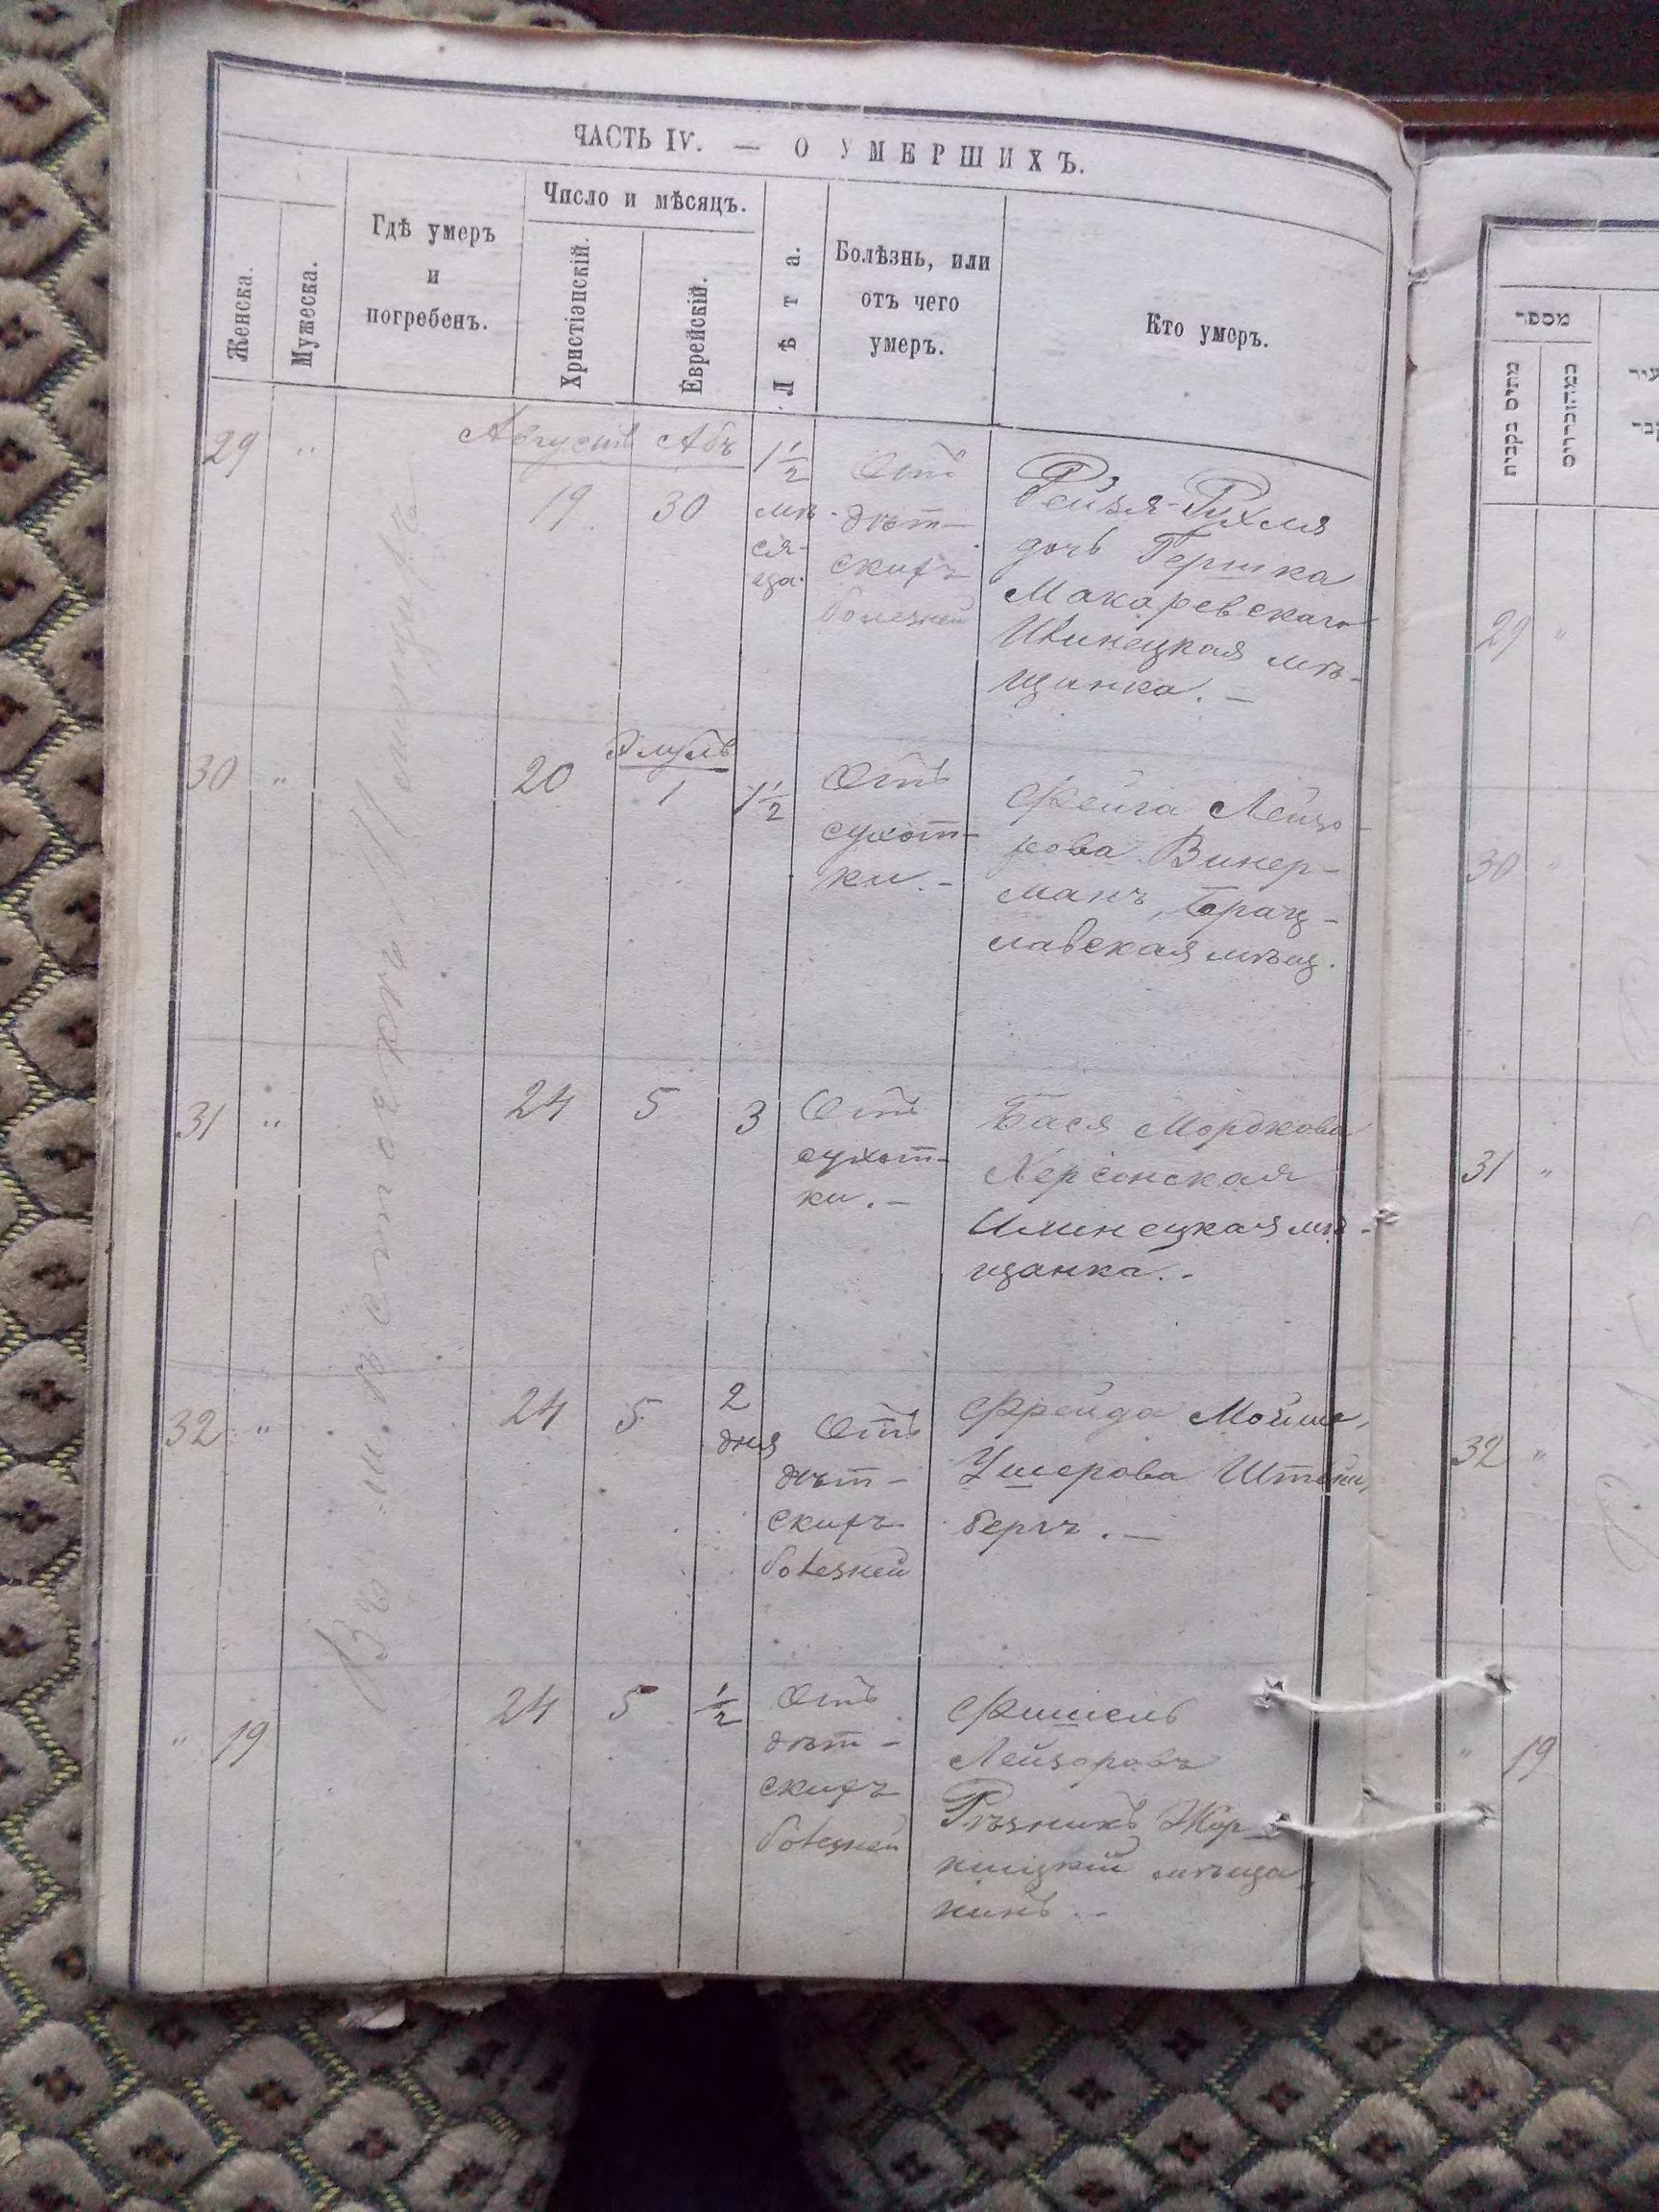 ЧАСТЬ IV. — О УМЕРШИХЪ.
Женска.
Мужеска.
Гдѣ умеръ
и
погребенъ.
Число и мѣсяцъ.
Христіанскій.
Еврейскій.
Лѣта.
Болѣзнь, или
отъ чего
умеръ.
Кто умеръ.
29 "
Августъ Абъ
19. 30
1½
мѣ-
ся-
ца.
Отъ
дѣт-
скихъ
болезней
Рейзя-Рухля
дочь Гершка
Макаревскаго
Илинецкая мѣ-
щанка. –
30 "
20
Элулъ
1
1½
Отъ
сухот-
ки. –
Фейга Лейзо-
рова Винер-
манъ, Брац-
лавская мѣщ.
31 "
24 5 3
Отъ
сухот-
ки. –
Бася Мордкова
Херсонская
Илинецкая мѣ-
щанка. –
32 "
24 5
2
дня
Отъ
дѣт-
скихъ
болезней
Фрейда Мойше,
Ушерова Штейн,
бергъ. —
" 19
24 5 ½
Отъ
дѣт-
скихъ
болезней
Фишель
Лейзоровъ
Рѣзникъ
мѣща
нинъ. –
Въ м.
מספר
מתים נקבות
29 "
30 "
31 "
32 "
" 19